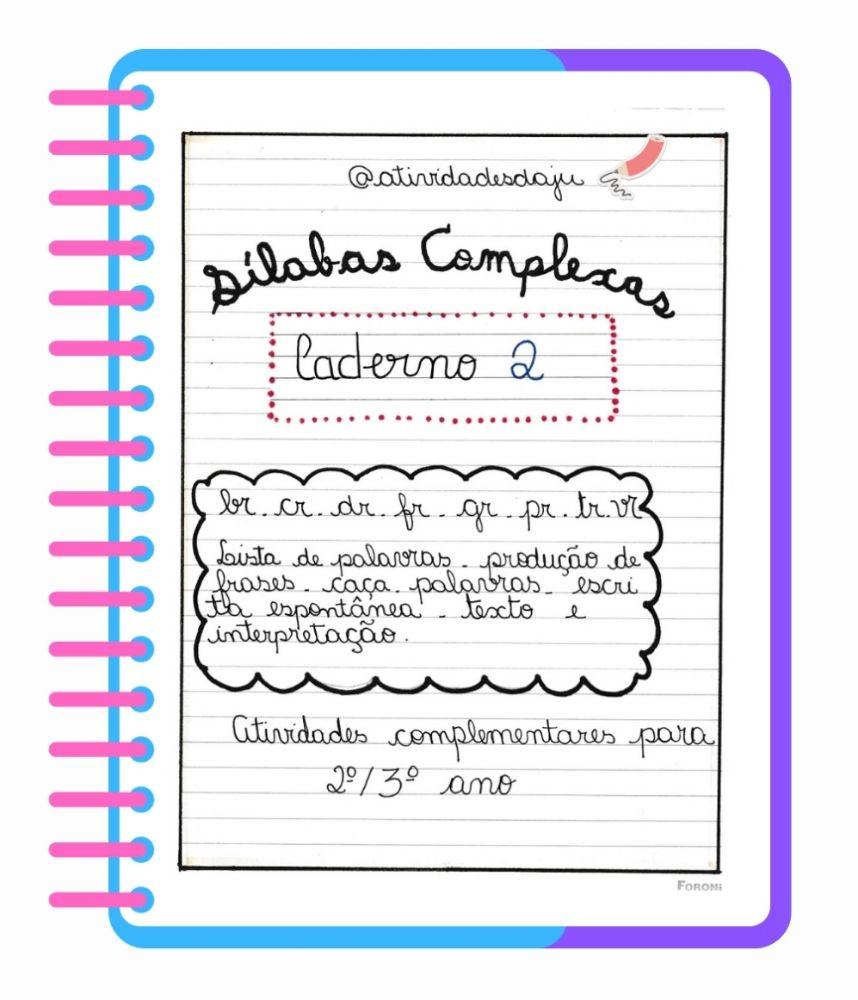 @atividadesdaju
Sílabas Complexas
Caderno 2
br. cr. dr. fr. gr. pr. tr. vr
Lista de palavras. produção de
frases. caça. palavras. escri
ta espontânea. texto e
interpretação.
Atividades complementares para
2º/3º ano
FORONI